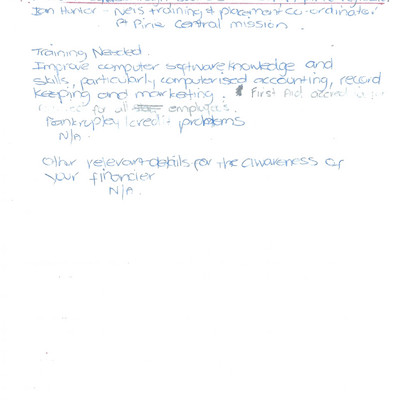 Ian Hunter - Neis training & placement co-ordinator.
Pt Pirie Central mission.
Training Needed.
Improve computer software knowledge and
skills, particularly computerised accounting, record
keeping and marketing. First Aid
for all employees.
Bankruptcy/credit problems
N/A.
Other relevant details for the awareness of
your financier
N/A.